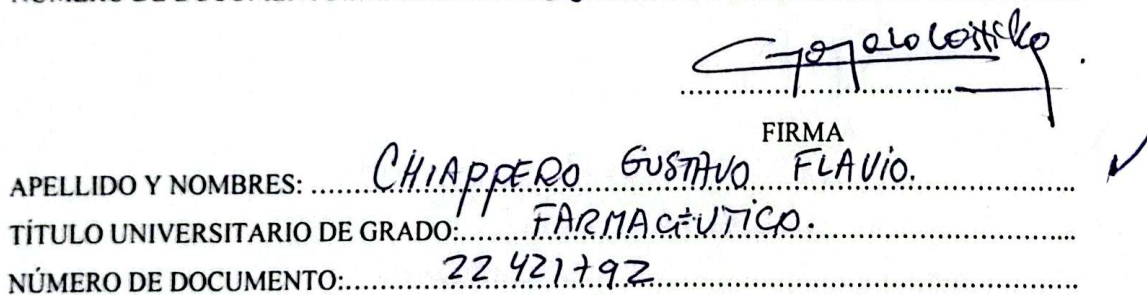 FIRMA
APELLIDO Y NOMBRES: CHIAPPERO GUSTAVO FLAVIO.
TÍTULO UNIVERSITARIO DE GRADO: FARMACÉUTICO.
NÚMERO DE DOCUMENTO: 22 421792